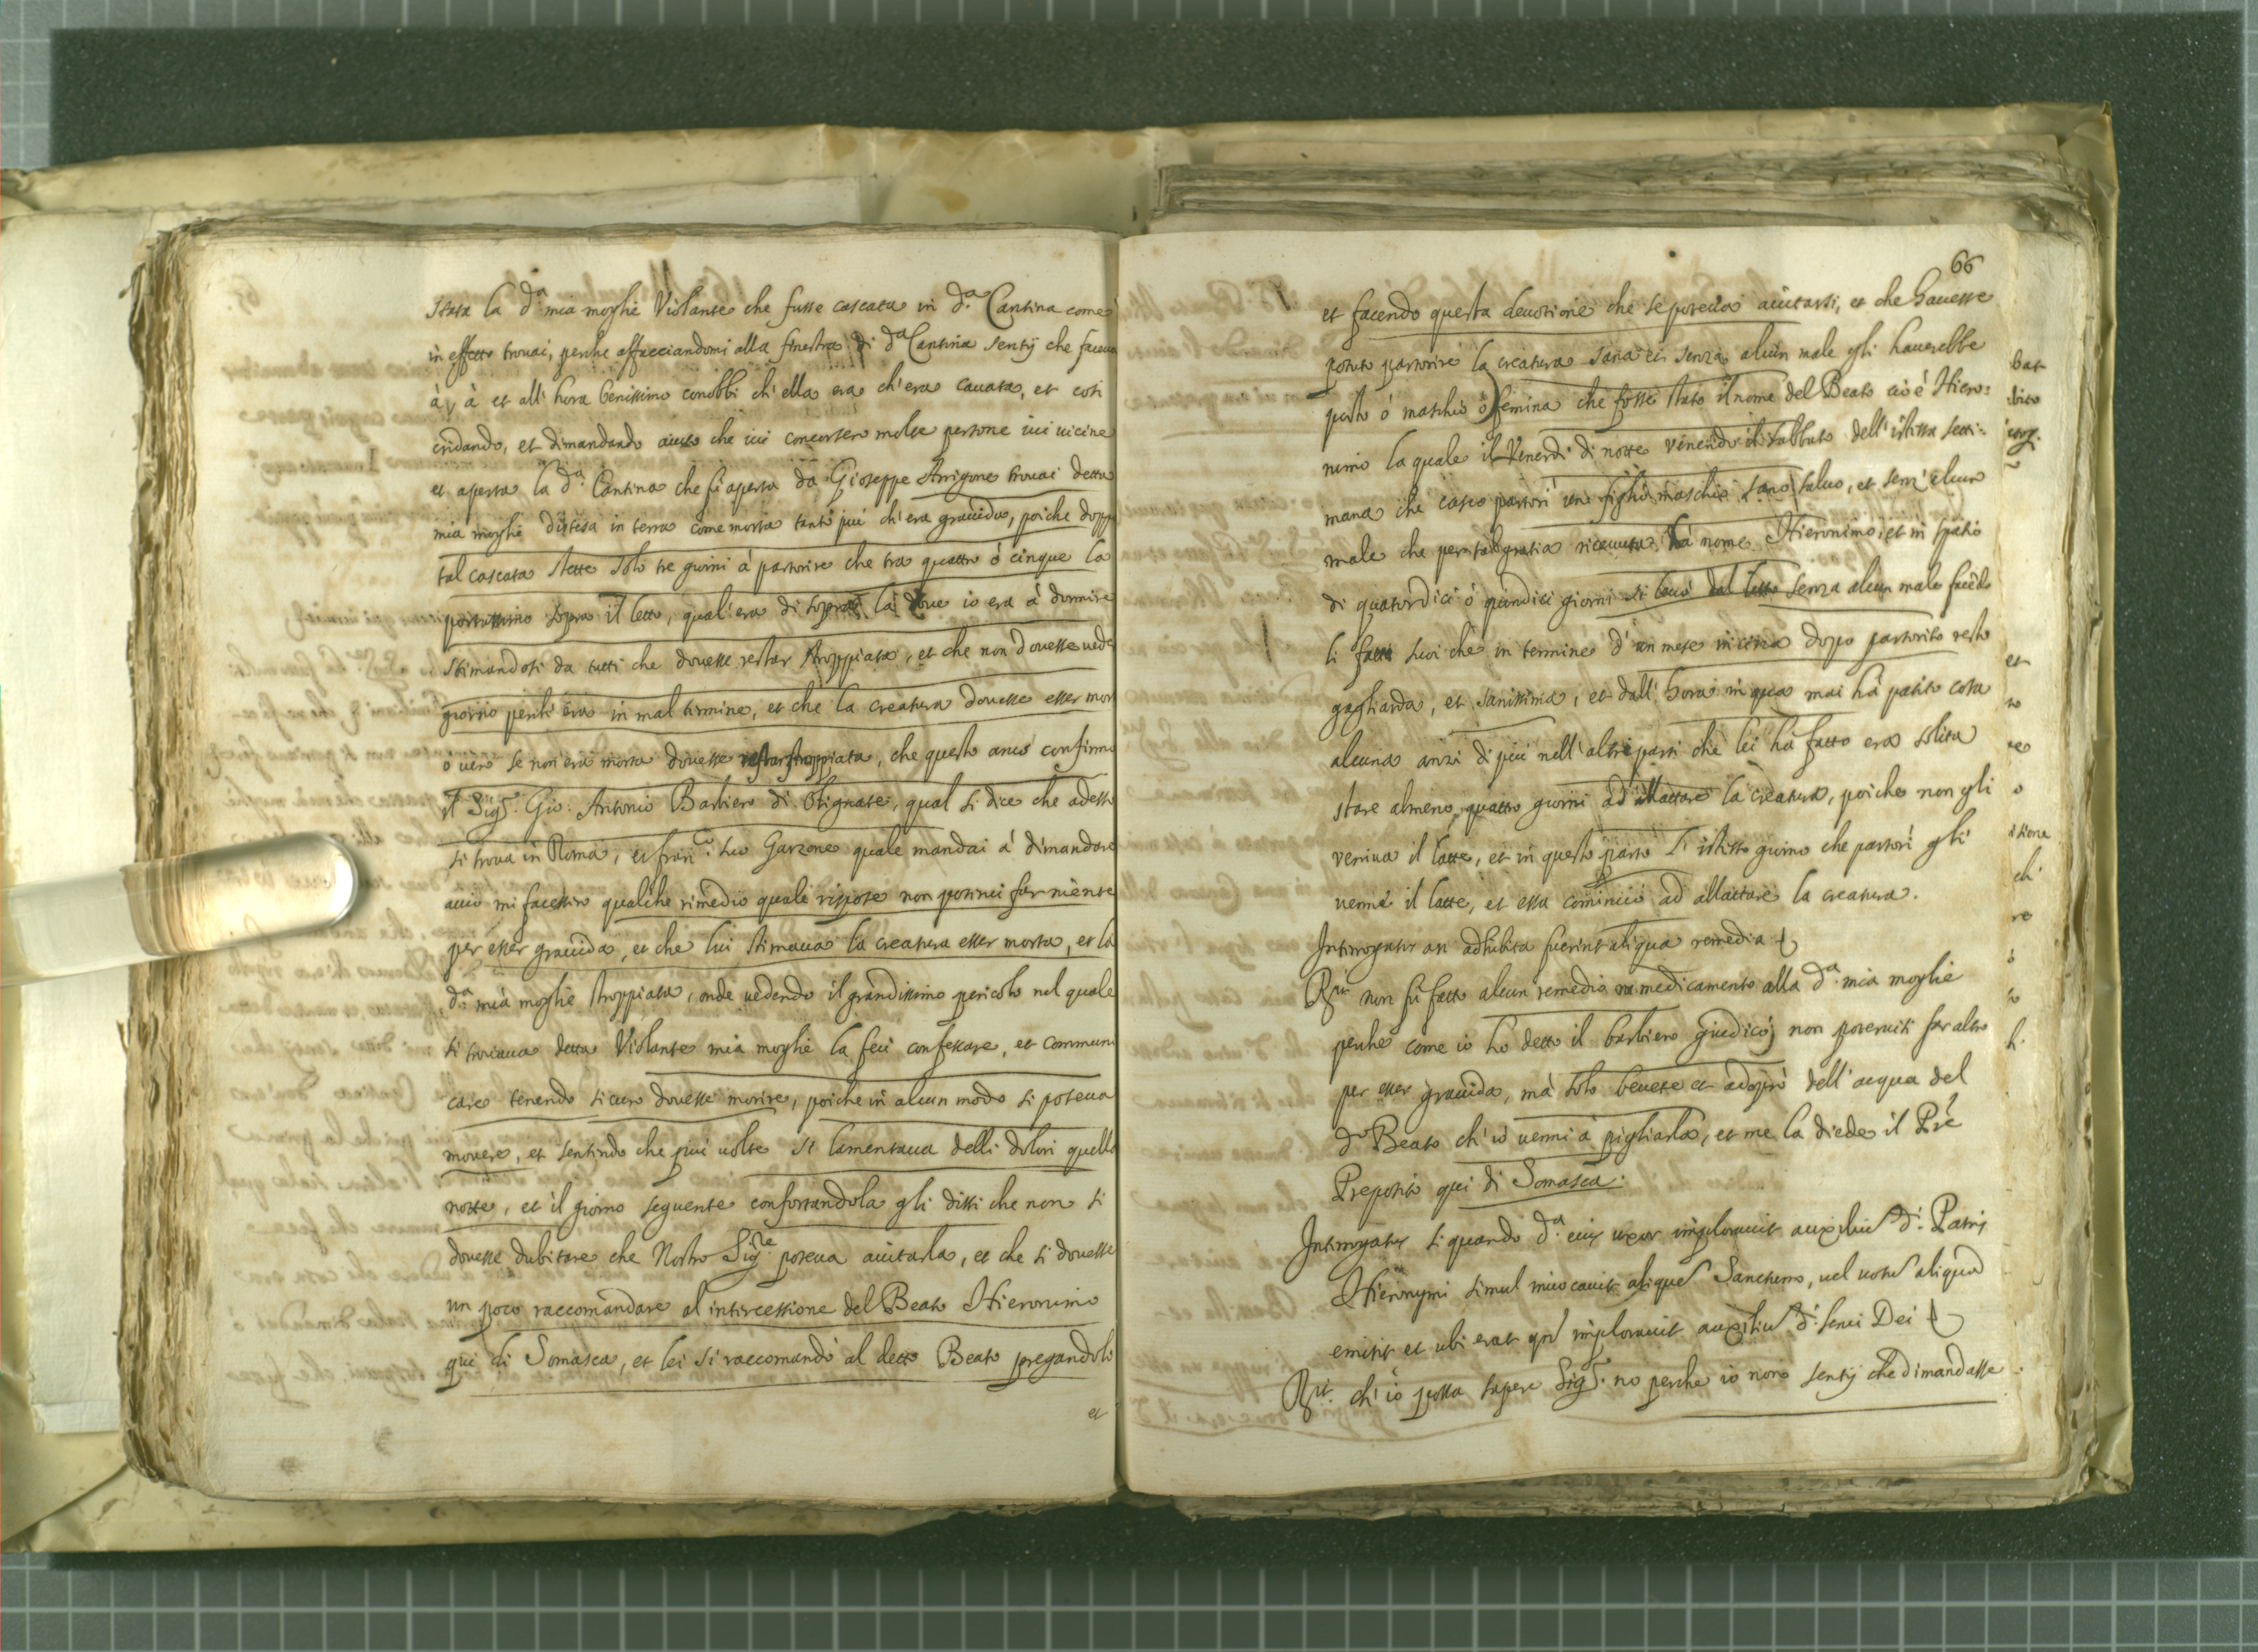 stata la d.ª mia moglie Violante che fusse cascata in d.ª Cantina come
in effetto trouai, perche affacciandomi alla finestra di d.ª Cantina sentij che faceua
à, à et all'hora benissimo conobbi ch'ella era ch'era cauata, et così
cridando, et dimandando aiuto che iui concorsero molte persone iui uicine
et aperta la d.ª Cantina che fù aperta da Gioseppe Arrigone trouai detta
mia moglie distesa in terra come morta tanto più ch'era grauida, poiche doppo
tal cascata stette solo tre giorni à partorire che tra quattro ò cinque la
portassimo sopra il letto, qual'era di sopra là doue io era à dormire
stimandosi da tutti che douesse restar stroppiata, et che non douesse uede
giorno perch'era in mal termine, et che la creatura douesse esser mor
ò uero se non era morta douesse restar stroppiata, che questo anco confirmò
il Sig.r Gio: Antonio Barbiero di Olginate, qual si dice che adesso
si troua in Roma, et Fran.co suo Garzone quale mandai à dimandare
acciò mi facessero qualche rimedio quali rispose non potersi far niente
per esser grauida, et che lui stimaua la creatura esser morta, et la
d.ª mia moglie stroppiata, onde uedendo il grandissimo pericolo nel quale
si trouaua detta Violante mia moglie la feci confessare, et communi
care tenendo sicuro douesse morire, poiche in alcun modo si poteua
mouere, et sentendo che più uolte si lamentaua delli dolori quella
notte, et il giorno seguente confortandola gli dissi che non si
douesse dubitare che Nostro Sig.re poteua aiutarla, et che si douesse
un poco raccomandare al intercessione del Beato Hieronimo
qui di Somasca, et lei si raccomandò al detto Beato pregandolo
et
66
et facendo questa deuotione che se poteua aiutarsi, et che hauesse
potuto partorire la creatura sana et senza alcun male gli hauerebbe
posto ò maschio ò femina che fosse stato il nome del Beato cioè Hiero=
nimo la quale il Venerdi di notte venendo il sabbato dell'istessa setti=
mana che cascò partorì un figlio maschio sano, saluo, et senz'alcun
male che per tal gratia riceuuta hà nome Hieronimo, et in spatio
di quatordici ò quindici giorni si leuò dal letto senza alcun male facēdo
li fatti suoi che in termine d'un mese in circa dopo partorito restò
gagliarda, et sanissima, et dall'hora in qua mai hà patito cosa
alcuna anzi di più nell'altri parti che lei hà fatto era solita
stare almeno quattro giorni ad allattare la creatura, poiche non gli
veniua il latte, et in questo parto l'istesso giorno che partorì gli
venne il latte, et essa cominciò ad allattare la creatura.
Interrogatus an adhibita fuerint aliqua remedia
R.it non fù fatto alcun remedio ne medicamento alla d.ª mia moglie
perche come io hò detto il barbiero giudicò, non poteruisi far altro
per esser grauida, mà solo beuete et adoprò dell'acqua del
d.º Beato ch'io venni à pigliarla, et me la diede il Pre
Preposito qui di Somasca.
Interrogatus si quando d.ª eius uxor implorauit auxiliū d.i Patris
Hieronymi simul inuocauit aliquē Sanctum, uel uotū aliquod
emisit et ubi erat qn implorauit auxiliū d.i serui Dei
R.it ch'io possa sapere Sig.r no perche io non sentij che dimandasse